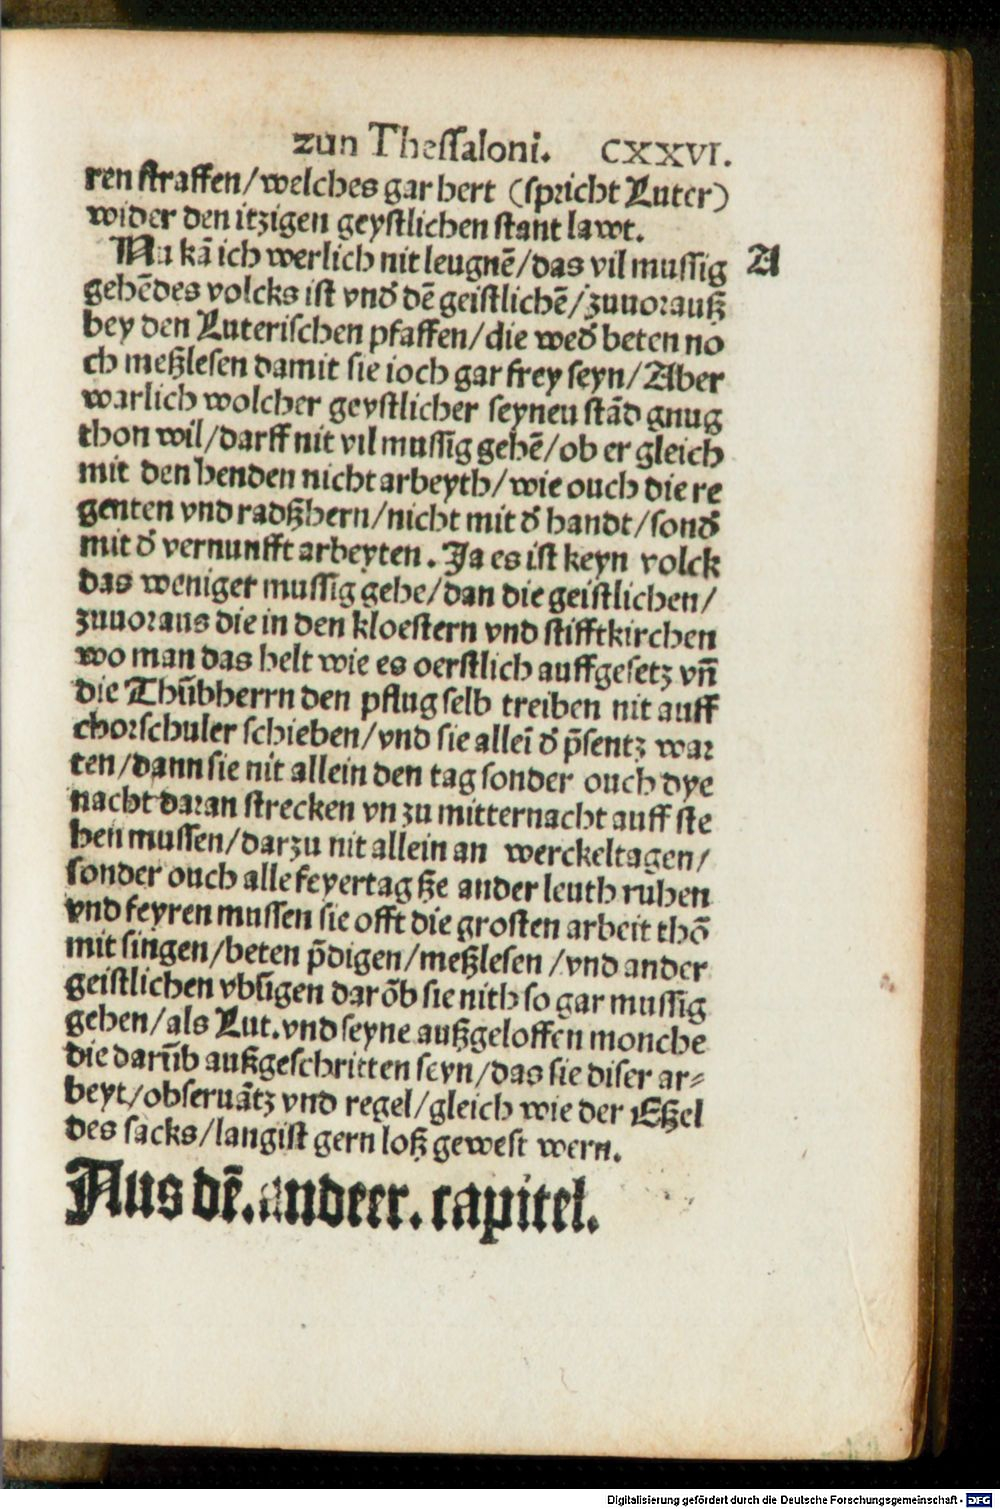 zun Thessaloni. CXXVI.
ren straffen/welches gar hert (spricht Luter)
wider den itzigen geystlichen stant lawt.
Nu kā ich werlich nit leugnē/das vil mussig A
gehēdes volcks ist vnd̕ dē geistlichē/zuuorauß
bey den Luterischen pfaffen/die wed̕ beten no
ch meßlesen damit sie ioch gar frey seyn/Aber
warlich wolcher geystlicher seyneu stād gnug
thon wil/darff nit vil mussig gehē/ob er gleich
mit den henden nicht arbeyth/wie ouch die re
genten vnd radßhern/nicht mit d̕ handt/sond̕
mit d̕ vernunfft arbeyten. Ja es ist keyn volck
das weniger mussig gehe/dan die geistlichen/
zuuoraus die in den kloestern vnd stifftkirchen
wo man das helt wie es oerstlich auffgesetz vn̄
die Thūbherrn den pflug selb treiben nit auff
chorschuler schieben/vnd sie alleī d̕ p̄sentz war
ten/dann sie nit allein den tag sonder ouch dye
nacht daran strecken vn zu mitternacht auff ste
hen mussen/darzu nit allein an werckeltagen/
sonder ouch alle feyertag ße ander leuth ruhen
vnd feyren mussen sie offt die grosten arbeit thō
mit singen/beten p̄digen/meßlesen /vnd ander
geistlichen vbūgen darōb sie nith so gar mussig
gehen/als Lut.vnd seyne außgeloffen monche
die darūb außgeschritten seyn/das sie diser ar⸗
beyt/obseruātz vnd regel/gleich wie der Eßel
des sacks/langist gern loß gewest wern.
Aus dē. andeer. capitel.
Digitalisierung gefördert durch die Deutsche Forschungsgemeinschaft - DFG